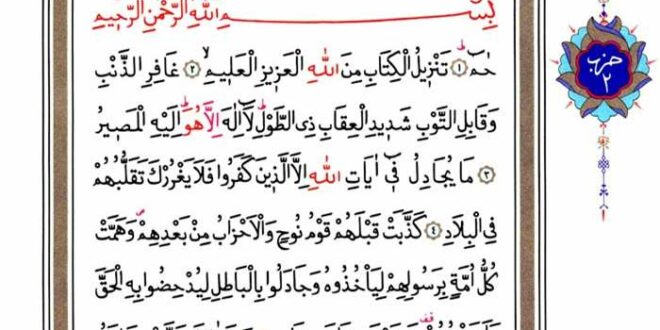 بِسْمِ اللهِ الرَّحْمٰنِ الرَّحِيمِ
حٰمٓ ﴿١﴾ تَنْزِيلُ الْكِتَابِ مِنَ اللهِ الْعَزِيزِ الْعَلِيمِۙ ﴿٢﴾ غَافِرِ الذَّنْبِ
وَقَابِلِ التَّوْبِ شَدِيدِ الْعِقَابِ ذِي الطَّوْلِۜ لَآ اِلٰهَ اِلَّا هُوَۜ اِلَيْهِ الْمَصِيرُ
﴿٣﴾ مَا يُجَادِلُ فِٓي اٰيَاتِ اللهِ اِلَّا الَّذِينَ كَفَرُوا فَلَا يَغْرُرْكَ تَقَلُّبُهُمْ
فِي الْبِلَادِ ﴿٤﴾ كَذَّبَتْ قَبْلَهُمْ قَوْمُ نُوحٍ وَالْاَحْزَابُ مِنْ بَعْدِهِمْۖ وَهَمَّتْ
كُلُّ اُمَّةٍ بِرَسُولِهِمْ لِيَأْخُذُوهُ وَجَادَلُوا بِالْبَاطِلِ لِيُدْحِضُوا بِهِ الْحَقَّ
حزب
٢